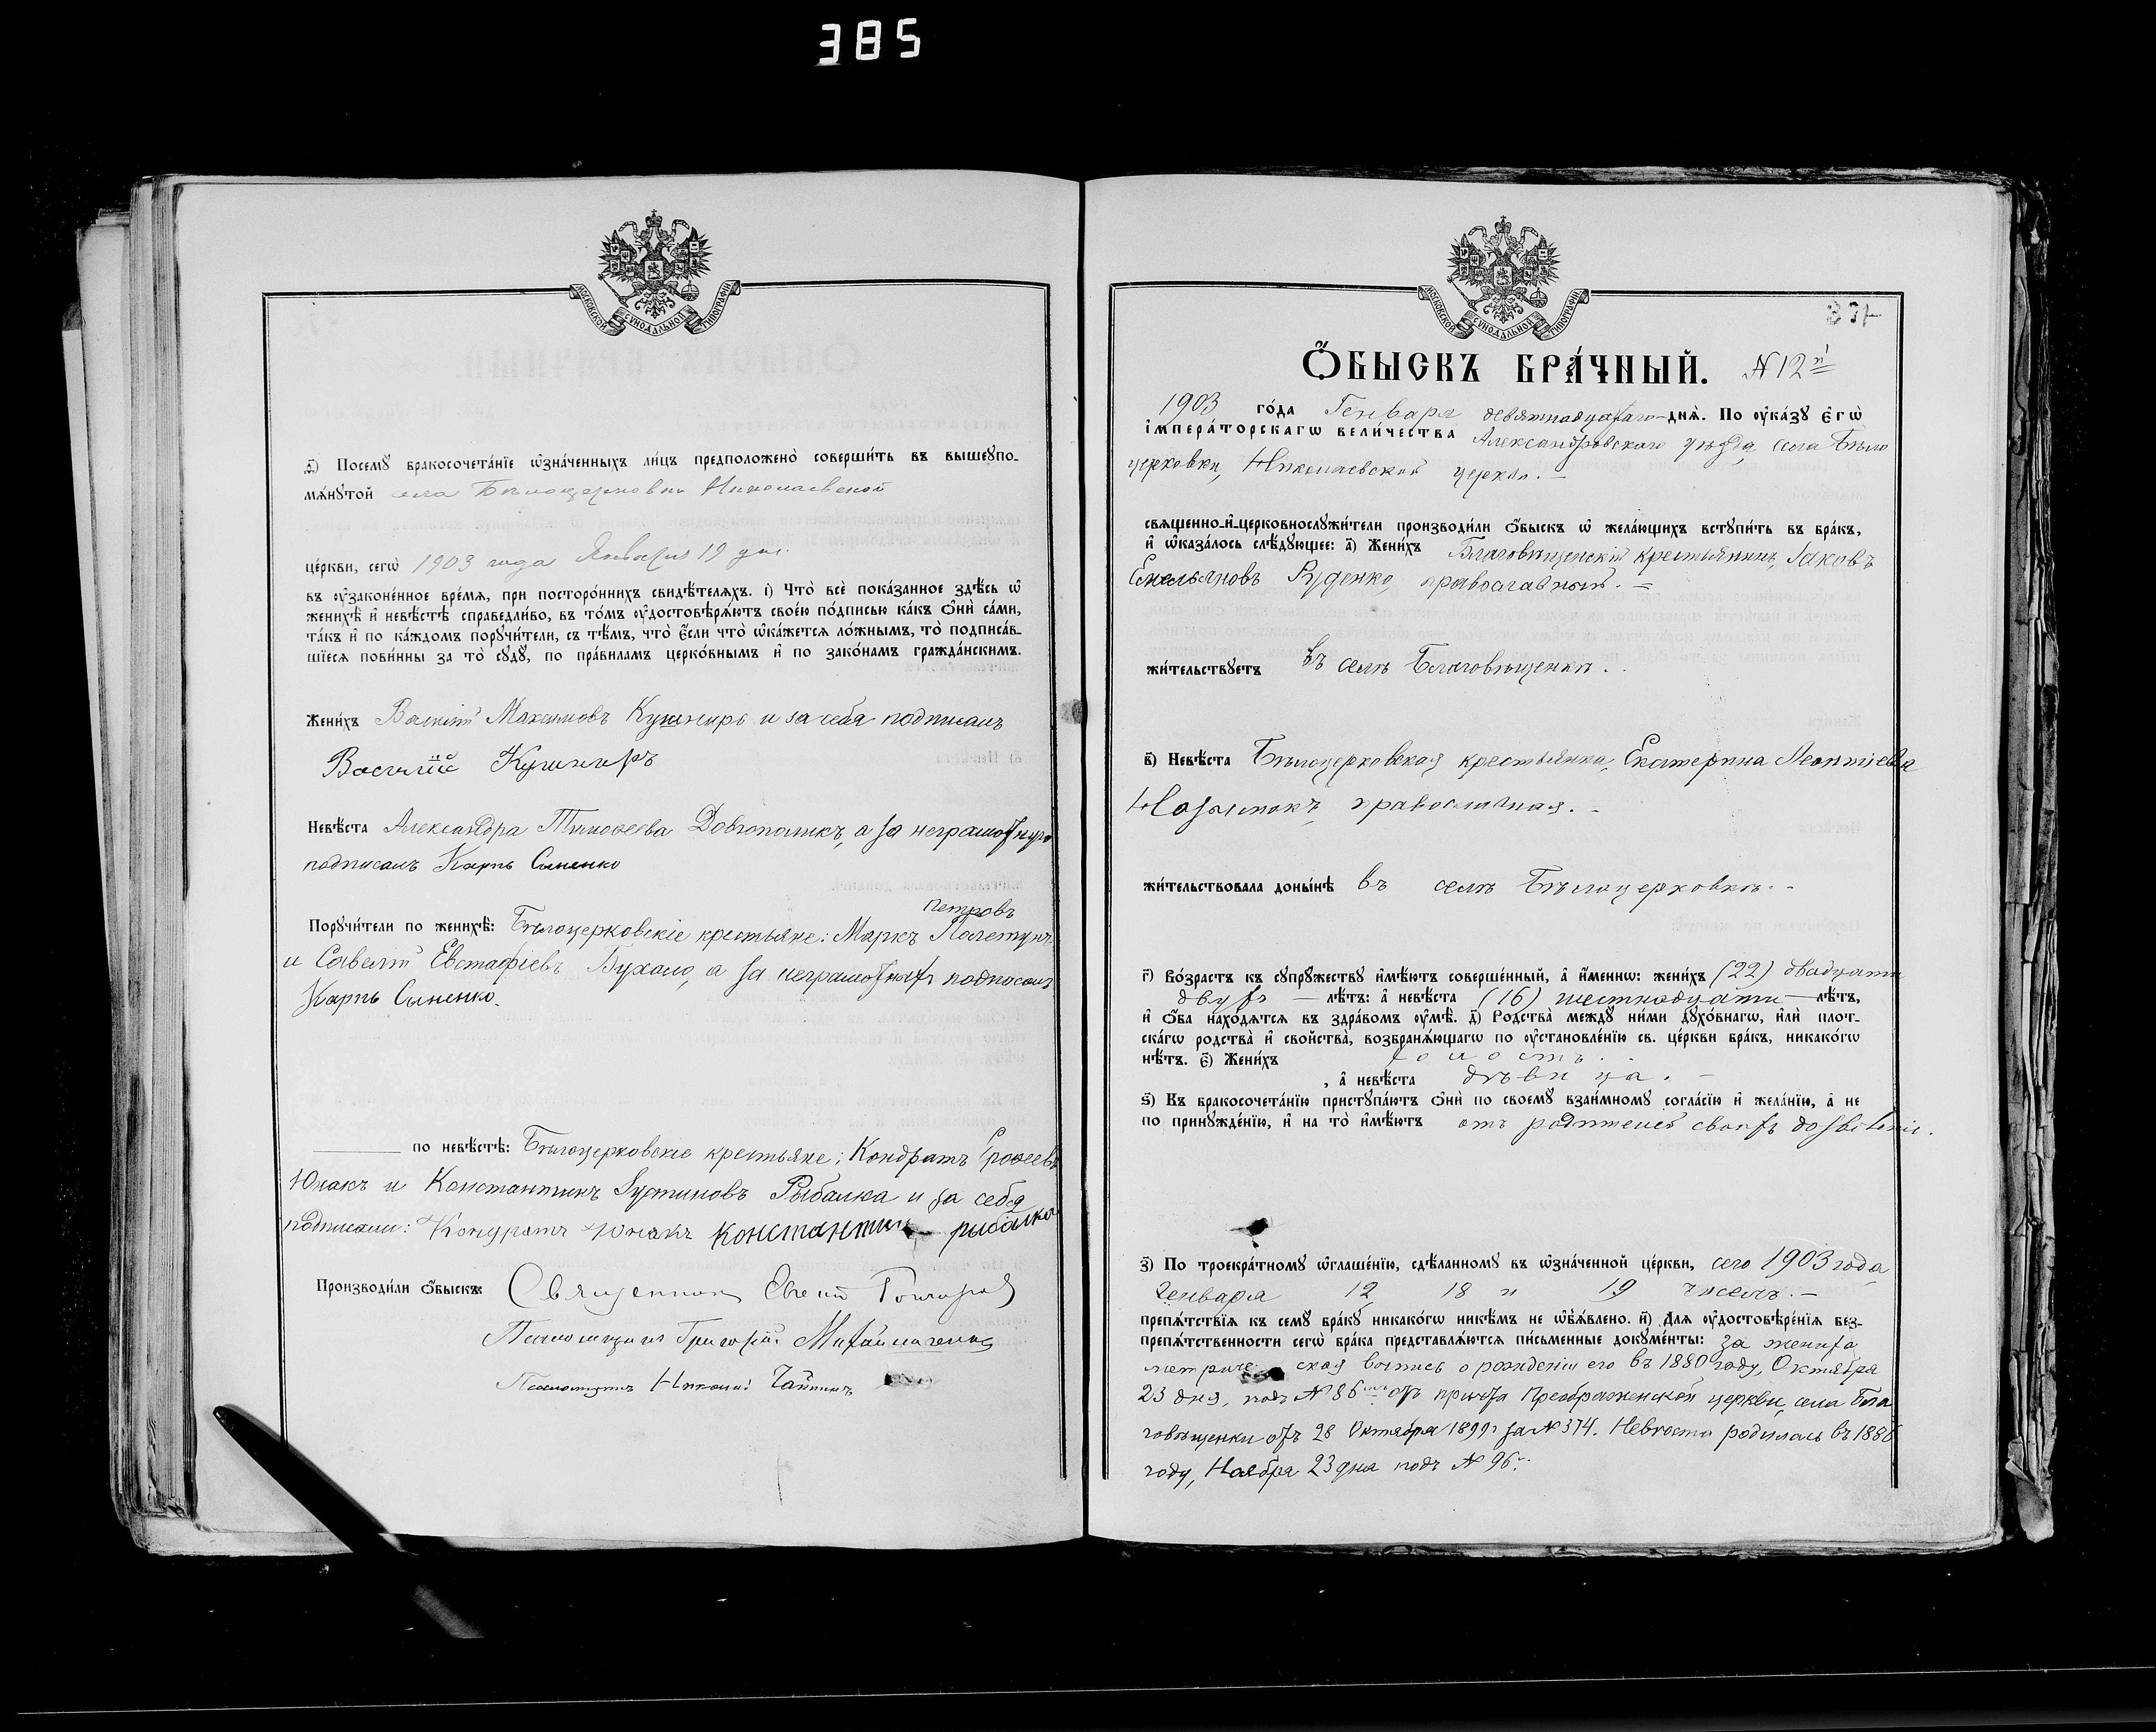 385
МОСКОВСКОЙ СѴНОДАЛЬНОЙ ТИПОГРАФІИ
ѳ҃) Посемꙋ̀ бракосочета́нїе ѡ҆зна́ченныхъ ли́цъ предположено̀ соверши́ть въ вышеꙋпо-
мѧ́нꙋтой села Бѣлоцерковки Николаевской
це́ркви, сегѡ̀ 1903 года Января 19 дня.
въ ᲂу҆зако́ненное вре́мѧ, при посторо́ннихъ свидѣ́телѧхъ. і҃) Что̀ всѐ пока́занное здѣ́сь ѡ҆
женихѣ̀ и҆ невѣ́стѣ справедли́во, въ то́мъ ᲂу҆достовѣрѧ́ютъ своє́ю по́дписью ка́къ ѻ҆нѝ са́ми,
та́къ и҆ по ка́ждомъ порꙋчи́тели, съ тѣ́мъ, что̀ є҆́сли что̀ ѡ҆ка́жетсѧ ло́жнымъ, то̀ подписа́в-
шїесѧ пови́нны за то̀ сꙋдꙋ̀, по пра́виламъ церко́внымъ и҆ по зако́намъ гражда́нскимъ.
Жени́хъ Василій Максимовъ Кушниръ и за себя подписалъ
Василій Кушниръ
Невѣ́ста Александра Тимоѳеева Довгополикъ, а за неграмотную
подписалъ Карпъ Сыненко
Петровъ
Порꙋчи́тели по женихѣ̀: Бѣлоцерковскіе крестьяне: Маркъ Полетунъ
и Савелій Евстафіевъ Бухало, а за неграмотныхъ подписалъ
Карпъ Сыненко.
по невѣ́стѣ: Бѣлоцерковскіе крестьяне: Кондратъ Ероѳеевъ
Юнакъ и Константинъ Іустиновъ Рыбалка и за себя
подписали: Кондратъ Юнакъ Константин рыбалка
Производи́ли ѻ҆́быскъ: Священник Евгеній
Псаломщикъ Григорій Михайличенко
Псаломщикъ Николай
МОСКОВСКОЙ СѴНОДАЛЬНОЙ ТИПОГРАФІИ
374
Ѻ҆́БЫСКЪ БРА́ЧНЫЙ. №12й
1903 го́да Генваря девятнадцатаго днѧ̀. По ᲂу҆ка́зꙋ є҆гѡ̀
і҆мпера́торскагѡ вели́чества Александровскаго уѣзда, села Бѣло
церковки, Николаевской церкви.
свѧщенно-и҆-церковнослꙋжи́тели производи́ли ѻ҆́быскъ ѡ҆ жела́ющихъ встꙋпи́ть въ бра́къ,
и҆ ѡ҆каза́лось слѣ́дꙋющее: а҃) Жени́хъ Благовѣщенскій крестьянинъ, Іаковъ
Емельяновъ Руденко, православный.
жи́тельствꙋетъ въ селѣ Благовѣщенкѣ.
в҃) Невѣ́ста Бѣлоцерковская крестьянка, Екатерина Леонтіева
православная.
жи́тельствовала доны́нѣ въ селѣ Бѣлоцерковкѣ.
г҃) Во́зрастъ къ сꙋпрꙋ́жествꙋ и҆мѣ́ютъ соверше́нный, а҆ и҆́меннѡ: жени́хъ (22) двадцати
двухъ лѣ́тъ: а҆ невѣ́ста (16) шестнадцати лѣ́тъ,
и҆ ѻ҆́ба нахо́дѧтсѧ въ здра́вомъ ᲂу҆мѣ̀. д҃) Родства̀ междꙋ̀ ни́ми дꙋхо́внагѡ, и҆лѝ плот-
ска́гѡ родства̀ и҆ сво́йства, возбранѧ́ющагѡ по ᲂу҆становле́нїю св. це́ркви бра́къ, никако́гѡ
нѣ́тъ. є҃) Жени́хъ холостъ.
, а҆ невѣ́ста дѣвица.
ѕ҃) Къ бракосочета́нїю пристꙋпа́ютъ ѻ҆нѝ по своемꙋ̀ взаи́мномꙋ согла́сїю и҆ жела́нїю, а҆ не
по принꙋжде́нїю, и҆ на то̀ и҆мѣ́ютъ отъ родителей своихъ дозволеніе.
з҃) По троекра́тномꙋ ѡ҆глаше́нїю, сдѣ́ланномꙋ въ ѡ҆зна́ченной це́ркви, сего 1903 года
Генваря 12, 18 и 19 чиселъ.
препѧ́тствїѧ къ семꙋ̀ бра́кꙋ никако́гѡ никѣ́мъ не ѡ҆б̾ѧ́влено. и҃) Длѧ ᲂу҆достовѣре́нїѧ без-
препѧ́тственности сегѡ̀ бра́ка представлѧ́ютсѧ пи́сьменные докꙋме́нты: за жениха
метрическая выпись о рожденіи его въ 1880 году, Октября
23 дня, подъ №86 отъ причта Преображенской церкви, села Бла
говѣщенки отъ 28 Октября 1899 г за №374. Невѣста родилась въ 1886
году, Ноября 23 дня подъ №96.